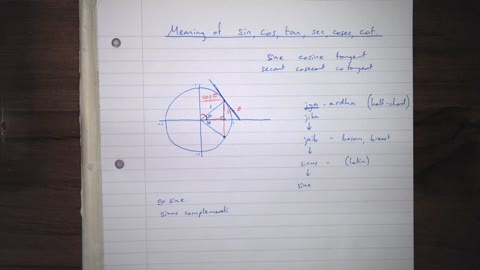 Meaning of sin cos, tan, sec, cosec, cot.
sine cosine tangent
secant cosecant cotangent
cosθ
θ
jya - ardha (half-chord)
jiba
jaib - bosom, breast
sinus - (latin)
sine
co sine
sinus complementi